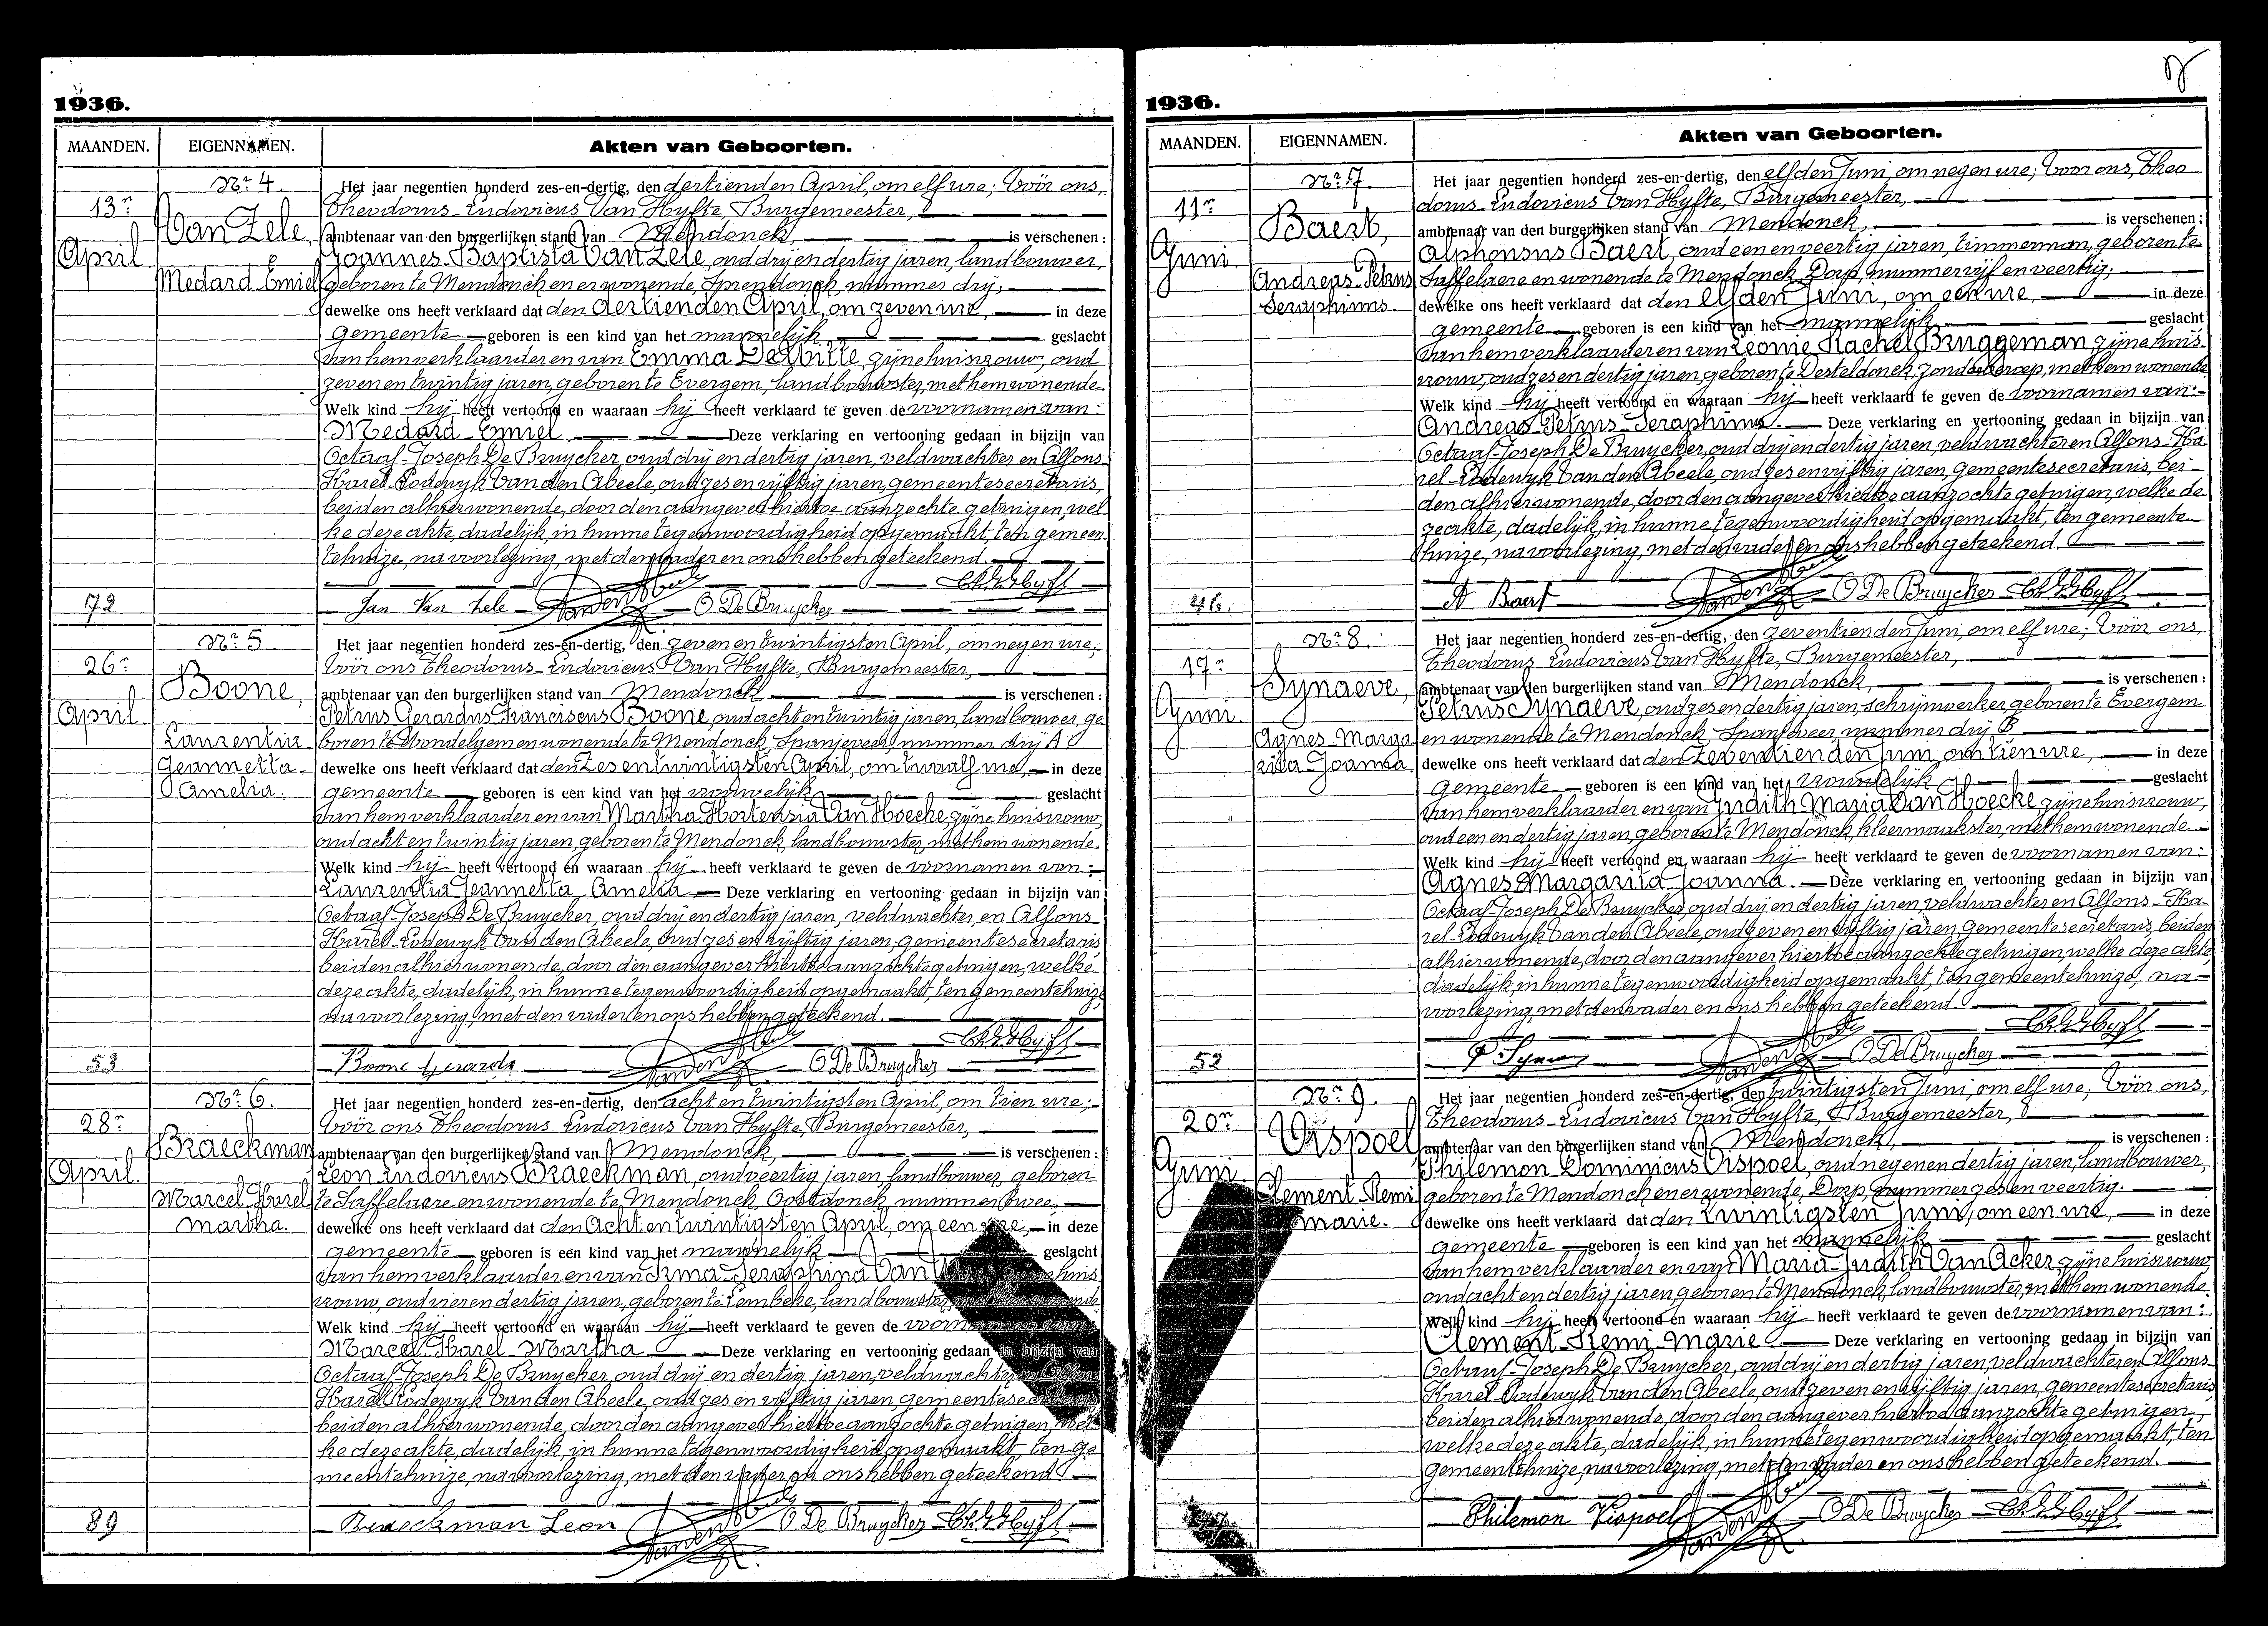 1936.
MAANDEN. EIGENNAMEN. Akten van Geboorten.
Nr 4.
13n
April
Van Zele,
Medard-Emiel
Het jaar negentien honderd zes-en-dertig, den dertienden April, om elf ure; Vóór ons,
Theodorus-Ludovicus Van Hyfte, Burgemeester,
ambtenaar van den burgerlijken stand van Mendonck, is verschenen:
Joannes Baptista Van Zele, oud drij en dertig jaren, landbouwer,
geboren te Mendonck en er wonende, Spendonck, nummer drij,
dewelke ons heeft verklaard dat den dertienden April, om zeven ure, in deze
gemeente geboren is een kind van het mannelijk geslacht
van hem verklaarder en van Emma De Witte, zijne huisvrouw, oud
zeven en twintig jaren, geboren te Evergem, landbouwster, met hem wonende.
Welk kind hij heeft vertoond en waaraan hij heeft verklaard te geven de voornamen van:
Medard-Emiel. Deze verklaring en vertooning gedaan in bijzijn van
Octaaf-Joseph De Bruycker, oud drij en dertig jaren, veldwachter en Alfons-
Karel-Lodewyk Van den Abeele, oud zes en vijftig jaren, gemeentesecretaris,
beiden alhier wonende, door den aangever hiertoe aanzochte getuigen, wel
ke deze akte, dadelijk in hunne tegenwoordigheid opgemaakt, ten gemeen
tehuize, na voorlezing, met den vader en ons hebben geteekend.
72
Jan Van Zele O De Bruycker
Nr 5
26n
April
Boone,
Laurentia
Jeannetta-
Amelia.
Het jaar negentien honderd zes-en-dertig, den zeven en twintigsten April, om negen ure,
Vóór ons Theodorus-Ludovicus Van Hyfte, Burgemeester,
ambtenaar van den burgerlijken stand van Mendonck is verschenen:
Petrus Gerardus Franciscus Boone, oud acht en twintig jaren, landbouwer, ge
boren te Wondelgem en wonende te Mendonck, Spanjeveer, nummer drij A
dewelke ons heeft verklaard dat den Zes en twintigsten April, om twaalf ure, in deze
gemeente geboren is een kind van het vrouwelijk geslacht
van hem verklaarder en van Martha Hortensia Van Hoecke, zijne huisvrouw,
oud acht en twintig jaren, geboren te Mendonck, landbouwster, met hem wonende.
Welk kind hij heeft vertoond en waaraan hij heeft verklaard te geven de voornamen van:
Laurentia Jeannetta Amelia Deze verklaring en vertooning gedaan in bijzijn van
Octaaf-Joseph De Bruycker, oud drij en dertig jaren, veldwachter, en Alfons-
Karel-Lodewyk Van den Abeele, oud zes en vijftig jaren, gemeentesecretaris
beiden alhier wonende, door den aangever hiertoe aanzochte getuigen, welke
deze akte, dadelijk, in hunne tegenwoordigheid opgemaakt, ten gemeentehuize
na voorlezing, met den vader en ons hebben geteekend.
53
Boone Gerards O De Bruycker
Nr 6.
28n
April
Braeckman
Marcel Karel
Martha.
Het jaar negentien honderd zes-en-dertig, den acht en twintigsten April, om tien ure;
Vóór ons Theodorus Ludovicus Van Hyfte, Burgemeester,
ambtenaar van den burgerlijken stand van Mendonck, is verschenen:
Leon Ludovicus Braeckman, oud veertig jaren, landbouwer, geboren
te Saffelaere en wonende te Mendonck, Oostdonck, nummer twee,
dewelke ons heeft verklaard dat den Acht en twintigsten April, om een ure, in deze
gemeente geboren is een kind van het mannelijk geslacht
van hem verklaarder en van Irma Seraphina Van zijne huis
vrouw, oud vier en dertig jaren, geboren te Lembeke, landbouwster, met hem wonende
Welk kind hij heeft vertoond en waaraan hij heeft verklaard te geven de voornamen van:
Marcel Karel Martha Deze verklaring en vertooning gedaan in bijzijn van
Octaaf-Joseph De Bruycker, oud drij en dertig jaren, veldwachter en Alfons
Karel Lodewyk Van den Abeele, oud zes en vijftig jaren, gemeentesecretaris
beiden alhier wonende, door den aangever hiertoe aanzochte getuigen, wel
ke deze akte, dadelijk, in hunne tegenwoordigheid opgemaakt, ten ge
meentehuize, na voorlezing, met den vader en ons hebben geteekend
89
Braeckman Leon O De Bruycker
1936.
MAANDEN. EIGENNAMEN. Akten van Geboorten.
Nr 7.
11n
Juni.
Baert,
Andreas-Petrus
Seraphinus.
Het jaar negentien honderd zes-en-dertig, den elfden Juni, om negen ure; Voor ons, Theo
dorus-Ludovicus Van Hyfte, Burgemeester,
ambtenaar van den burgerlijken stand van Mendonck, is verschenen;
Alphonsus Baert, oud een en veertig jaren, timmerman, geboren te
Saffelaere en wonende te Mendonck Dorp, nummer vijf en veertig,
dewelke ons heeft verklaard dat den elfden Juni, om een ure, in deze
gemeente geboren is een kind van het mannelijk geslacht
van hem verklaarder en van Leonie Rachel Bruggeman, zijne huis-
vrouw, oud zes en dertig jaren, geboren te Desteldonck, zonder beroep, met hem wonende
Welk kind hij heeft vertoond en waaraan hij heeft verklaard te geven de voornamen van:
Andreas Petrus-Seraphinus. Deze verklaring en vertooning gedaan in bijzijn van
Octaaf-Joseph De Bruycker, oud drij en dertig jaren, veldwachter en Alfons-Ka
rel-Lodewyk Van den Abeele, oud zes en vijftig jaren, gemeentesecretaris, bei-
den alhier wonende, door den aangever hiertoe aanzochte getuigen, welke de-
ze akte, dadelijk, in hunne tegenwoordigheid opgemaakt, ten gemeente-
huize, na voorlezing, met den vader en ons hebben geteekend.
46.
A Baert O De Bruycker
Nr 8.
17n
Juni.
Synaeve,
Agnes-Marga
rita Joanna
Het jaar negentien honderd zes-en-dertig, den zeventienden Juni, om elf ure; Vóór ons,
Theodorus-Ludovicus Van Hyfte, Burgemeester,
ambtenaar van den burgerlijken stand van Mendonck, is verschenen:
Petrus Synaeve, oud zes en dertig jaren, schrijnwerker geboren te Evergem
en wonende te Mendonck Spanjeveer nummer drij B.
dewelke ons heeft verklaard dat den Zeventienden Juni, om tien ure, in deze
gemeente geboren is een kind van het vrouwelijk geslacht
van hem verklaarder en van Judith Maria Van Hoecke, zijne huisvrouw,
oud een en dertig jaren, geboren te Mendonck, kleermaakster, met hem wonende.
Welk kind hij heeft vertoond en waaraan hij heeft verklaard te geven de voornamen van:
Agnes Margarita Joanna. Deze verklaring en vertooning gedaan in bijzijn van
Octaaf-Joseph De Bruycker, oud drij en dertig jaren, veldwachter en Alfons-Ka-
rel-Lodewyk Van den Abeele, oud zeven en vijftig jaren, gemeentesecretaris, beiden
alhier wonende, door den aangever hiertoe aanzochte getuigen, welke deze akte,
dadelijk, in hunne tegenwoordigheid opgemaakt, ten gemeentehuize, na-
voorlezing, met den vader en ons hebben geteekend.
52
P Synaeve O De Bruycker
Nr 9.
20n
Juni
Vispoel,
Clement-Remi
Marie.
Het jaar negentien honderd zes-en-dertig, den twintigsten Juni, om elf ure; Vóór ons,
Theodorus-Ludovicus Van Hyfte, Burgemeester,
ambtenaar van den burgerlijken stand van Mendonck, is verschenen:
Philemon Dominicus Vispoel, oud negen en dertig jaren, landbouwer,
geboren te Mendonck en er wonende, Dorp, nummer zes en veertig.
dewelke ons heeft verklaard dat den twintigsten Juni, om een ure, in deze
gemeente geboren is een kind van het mannelijk geslacht
van hem verklaarder en van Maria-Judith Van Acker, zijne huisvrouw,
oud acht en dertig jaren, geboren te Mendonck, landbouwster, met hem wonende
Welk kind hij heeft vertoond en waaraan hij heeft verklaard te geven de voornamen van:
Clement-Remi-Marie. Deze verklaring en vertooning gedaan in bijzijn van
Octaaf-Joseph De Bruycker, oud drij en dertig jaren, veldwachter en Alfons-
Karel-Lodewyk Van den Abeele, oud zeven en vijftig jaren, gemeentesecretaris
beiden alhier wonende, door den aangever hiertoe aanzochte getuigen,
welke deze akte, dadelijk, in hunne tegenwoordigheid opgemaakt, ten
gemeentehuize, na voorlezing, met den vader en ons hebben geteekend.
Philemon Vispoel O De Bruycker